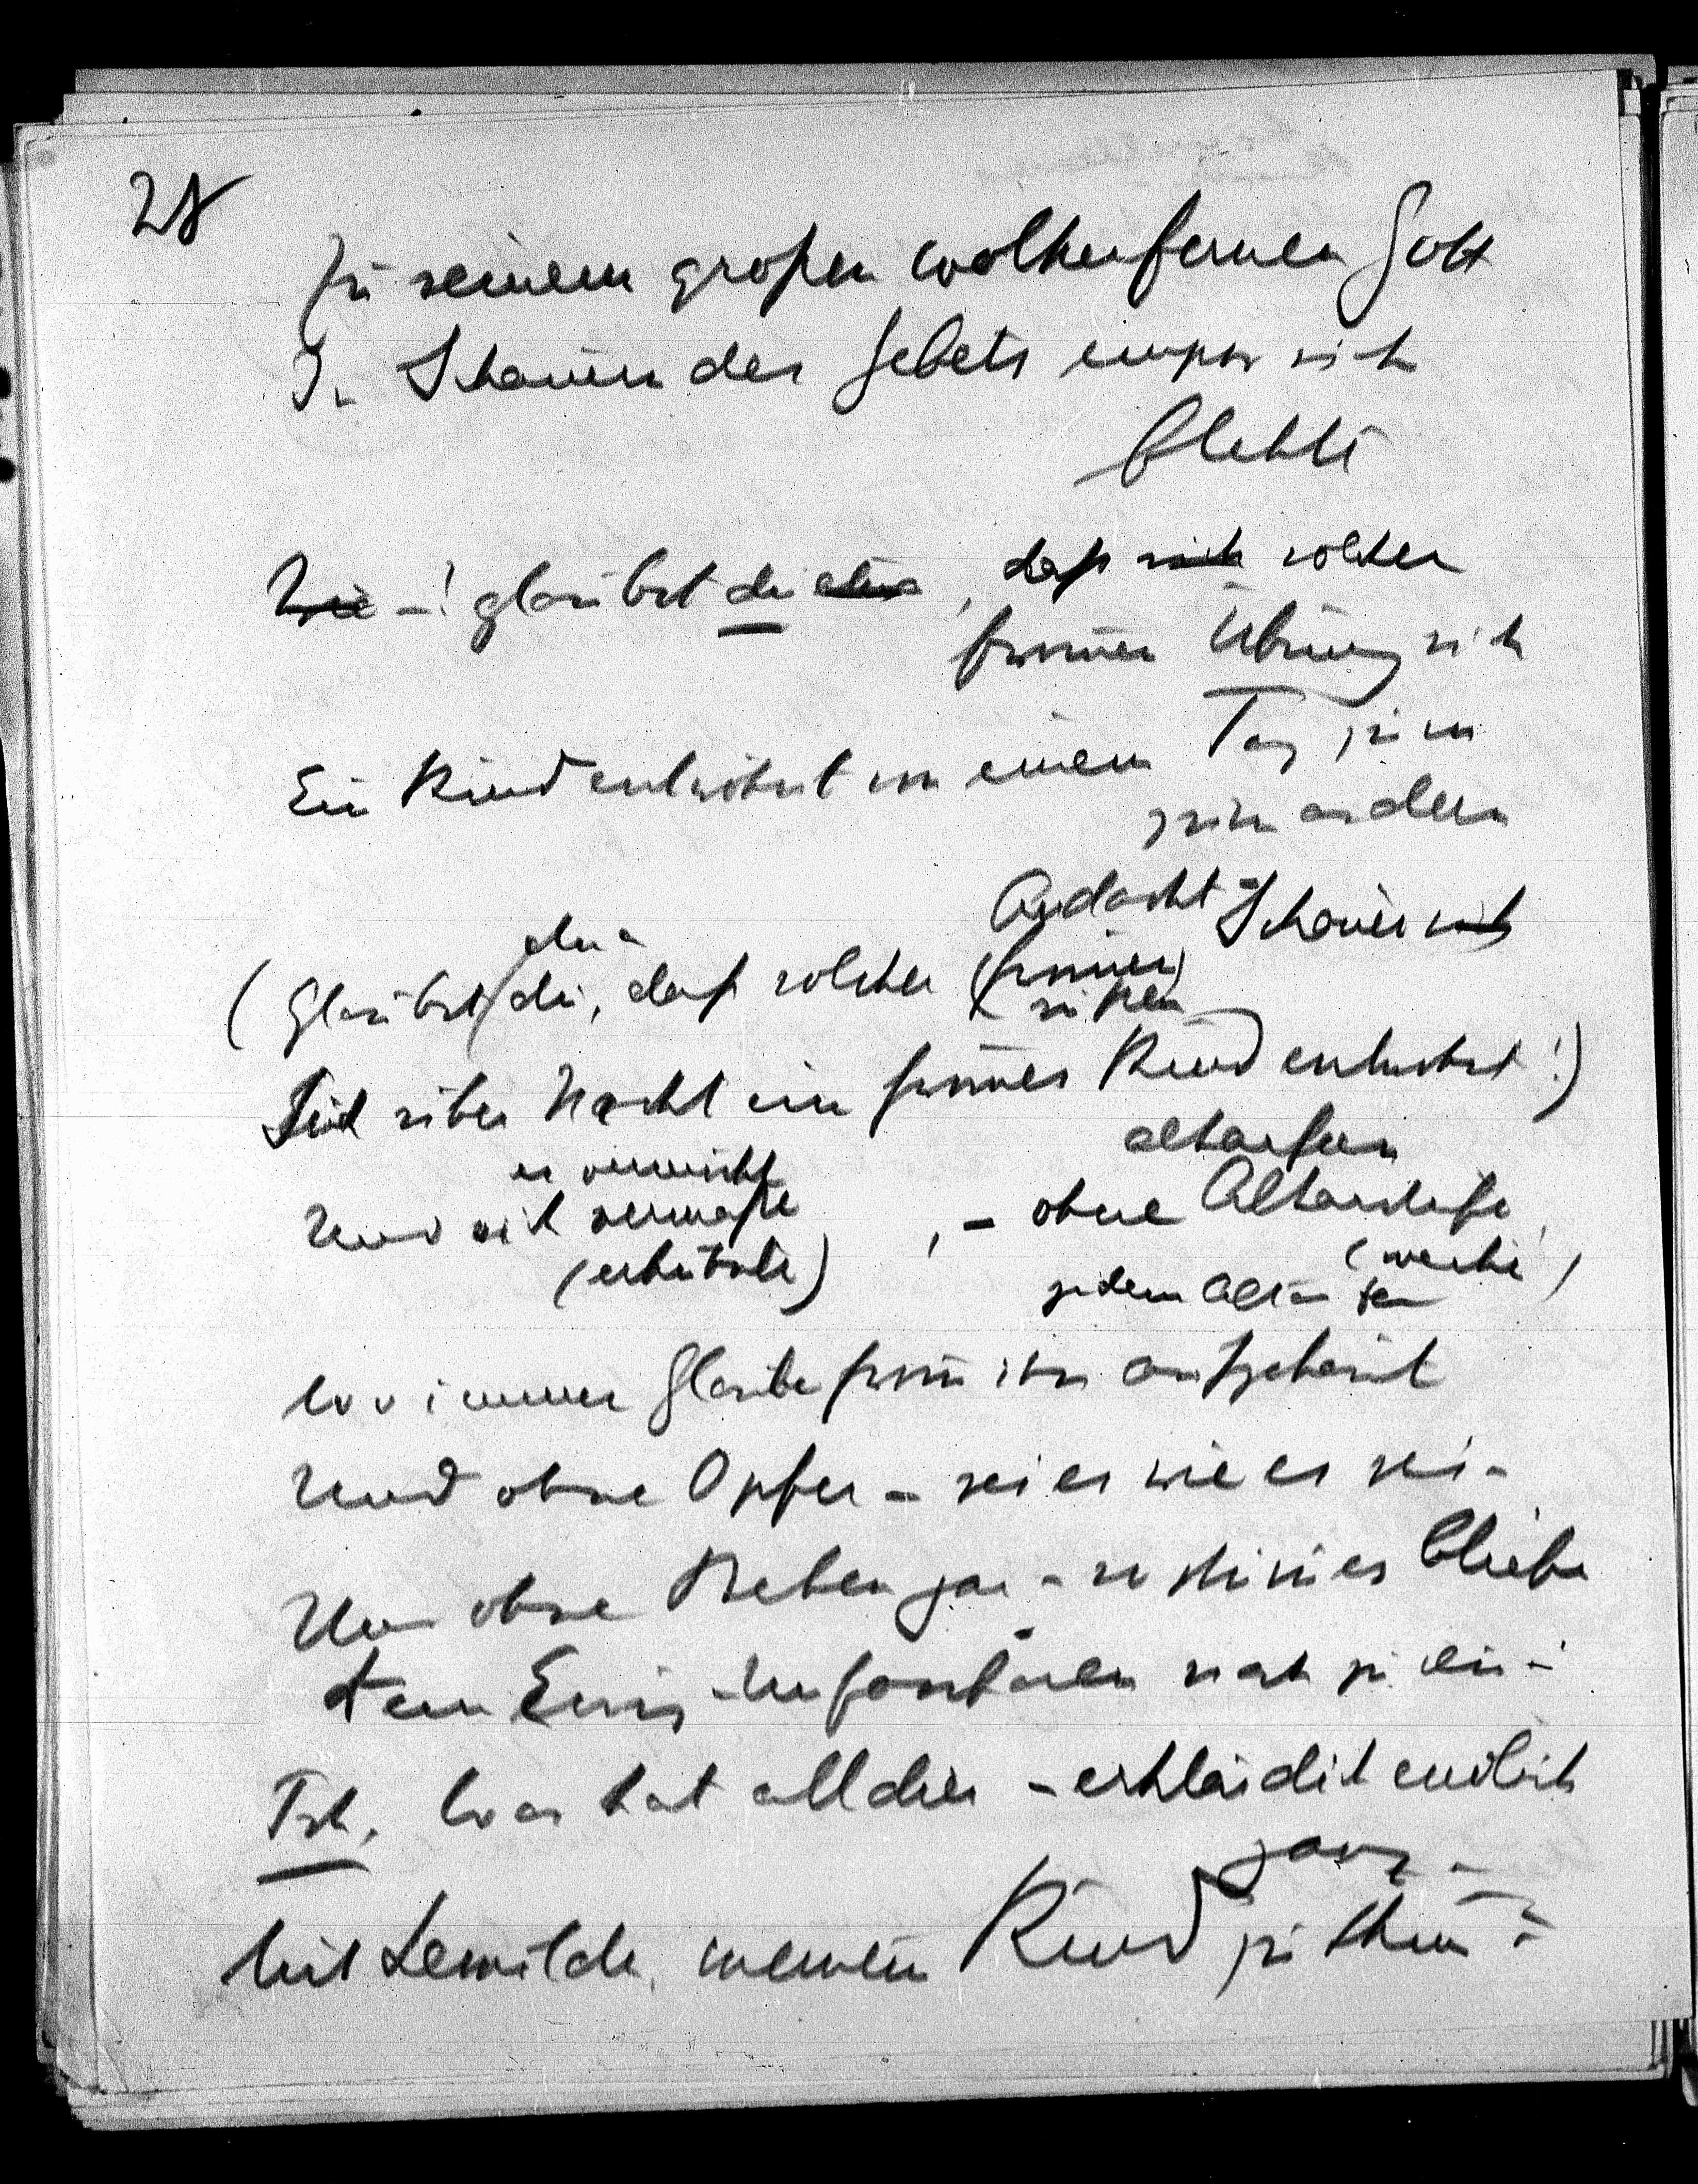 28
Zu seinem großen wolkenfernen Gott
In Schauern des Gebets empor sich
flehte
Wie –! glaubst du etwa, daß sich solcher
frommen Übung sich
Ein Kind entwöhnt von einem Tag zum
zum andern
Andacht Schauer sich
etwa
(Glaubst du, daß solcher (frommer)
süßen
Sich über Nacht ein frommes Kind entwöhnt!)
altarfern
es
Und sich vermaße, – ohne Altarstufe,
(erkühnte) (weihe)
jedem Altar fern
wo immer Glaube fromm ihn aufgebaut
Und ohne Opfer – sei es wie es sei –
Und ohne Beten gar – so stumm es bliebe
dem Ewig-Unfassbaren nah zu sein –
Tsch. Was hat all dies – erklär dich endlich
ganz –
Mit Lewilde, meinem Kind zu thun?